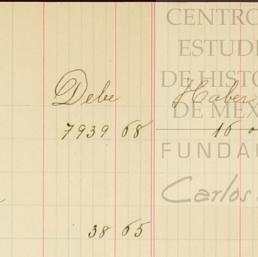 CENTRO
ESTUDI
DE HISTO
DE MÉX
FUNDAC
Carlos
Debe Haber
7939 68 16
38 65